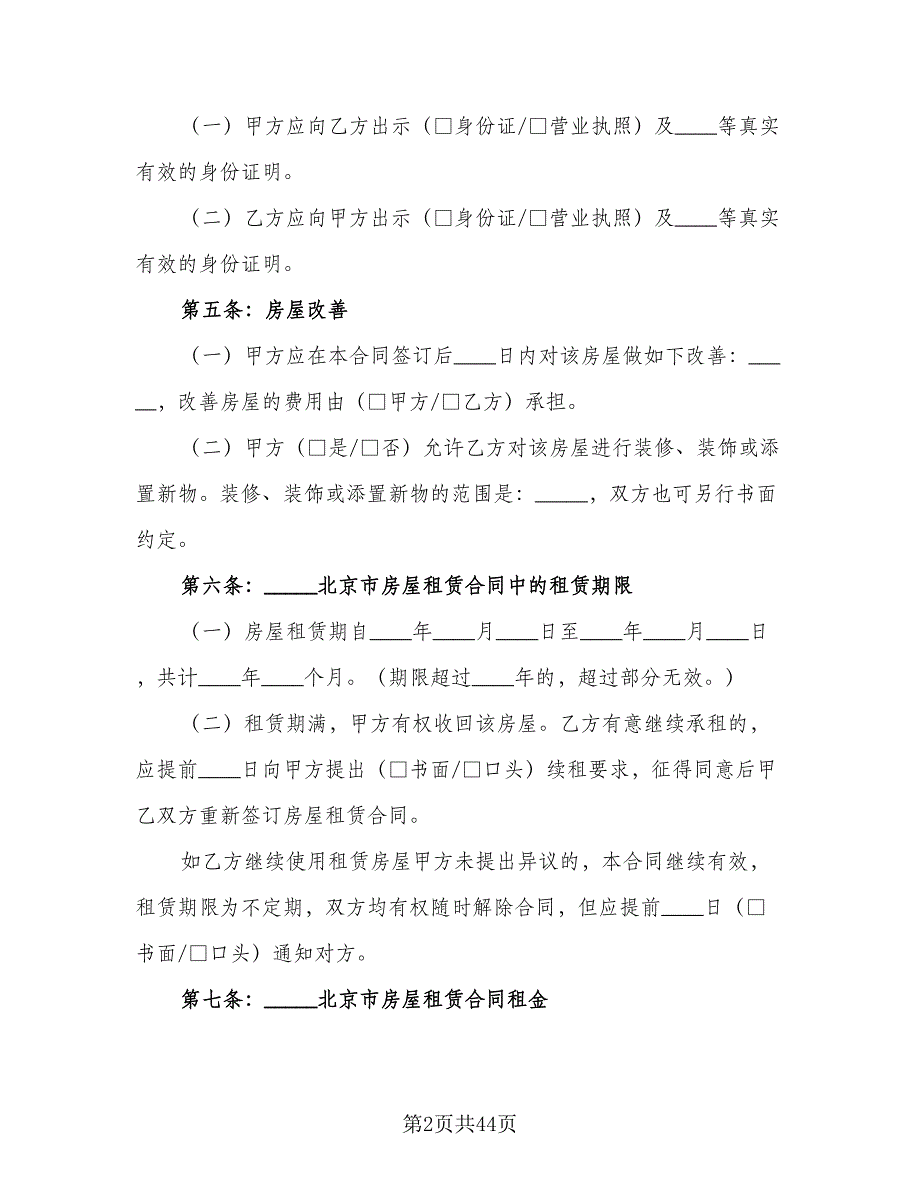 （一）甲方应向乙方出示（□身份证/□营业执照）及____等真实
有效的身份证明。
（二）乙方应向甲方出示（□身份证/□营业执照）及____等真实
有效的身份证明。
第五条：房屋改善
（一）甲方应在本合同签订后____日内对该房屋做如下改善：___
__，改善房屋的费用由（□甲方/□乙方）承担。
（二）甲方（□是/□否）允许乙方对该房屋进行装修、装饰或添
置新物。装修、装饰或添置新物的范围是：_____，双方也可另行书面
约定。
第六条：_____北京市房屋租赁合同中的租赁期限
（一）房屋租赁期自____年____月____日至____年____月____日
，共计____年____个月。（期限超过____年的，超过部分无效。）
（二）租赁期满，甲方有权收回该房屋。乙方有意继续承租的，
应提前____日向甲方提出（□书面/□口头）续租要求，征得同意后甲
乙双方重新签订房屋租赁合同。
如乙方继续使用租赁房屋甲方未提出异议的，本合同继续有效，
租赁期限为不定期，双方均有权随时解除合同，但应提前____日（□
书面/□口头）通知对方。
第七条：_____北京市房屋租赁合同租金
第2页共44页